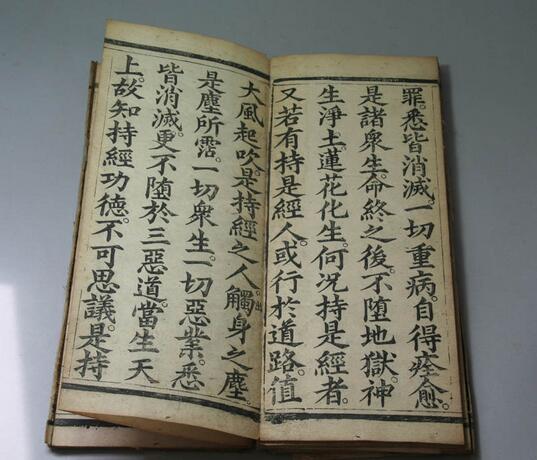 罪。悉皆消滅。一切重病。自得痊愈。
是諸衆生。命終之後。不墮地獄。神
生淨土。蓮花化生。何況持是經者。
又若有持是經人。或行於道路。值
大風起吹。是持經之人。觸身之塵。出
是塵所霑。一切衆生。一切惡業。悉
皆消滅。更不墮於三惡道。當生天
上。故知持經功德。不可思議。是持